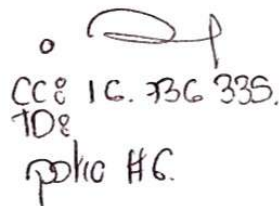 CC: 16.736 335.
TD:
patio #6.